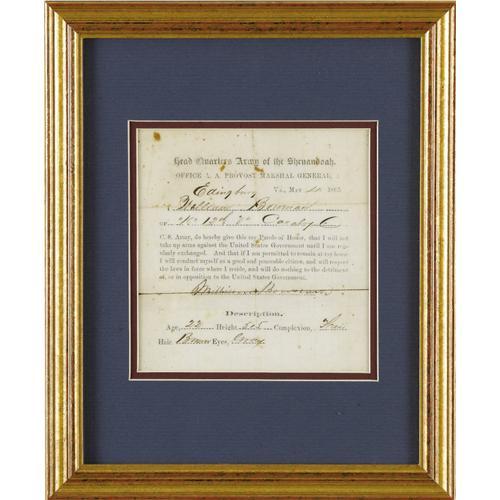 Head Quarters Army of the Shenandoah,
OFFICE A. A. PROVOST MARSHAL GENERAL,
Edinburg Va., May 1865
William Bowman
OF "K" 12th Va Cavalry C
C. S. Army, do hereby give this my Parole of Honor, that I will not
take up arms against the United States Government until I am reg-
ularly exchanged. And that if I am permitted to remain at my home
I will conduct myself as a good and peaceable citizen, and will respect
the laws in force where I reside, and will do nothing to the detriment
of, or in opposition to the United States Government.
William Bowman
Description.
Age, 22 Height, 5.5 Complexion, Fair
Hair Brown Eyes, Gray